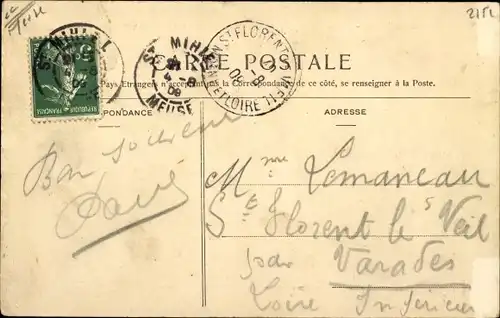 2151
CARTE POSTALE
Pays Etrangers n'acceptent pas la Correspondance de ce côté, se renseigner à la Poste.
PONDANCE
ADRESSE
ST MIHIEL
4-8
08
MEUSE
ST FLORENT
-8
08
ET LOIRE
REPUBLIQUE FRANÇAISE
Bon souvenir
Mme Lemanceau
St Florent le Veil
par Varades
Loire Inférieure